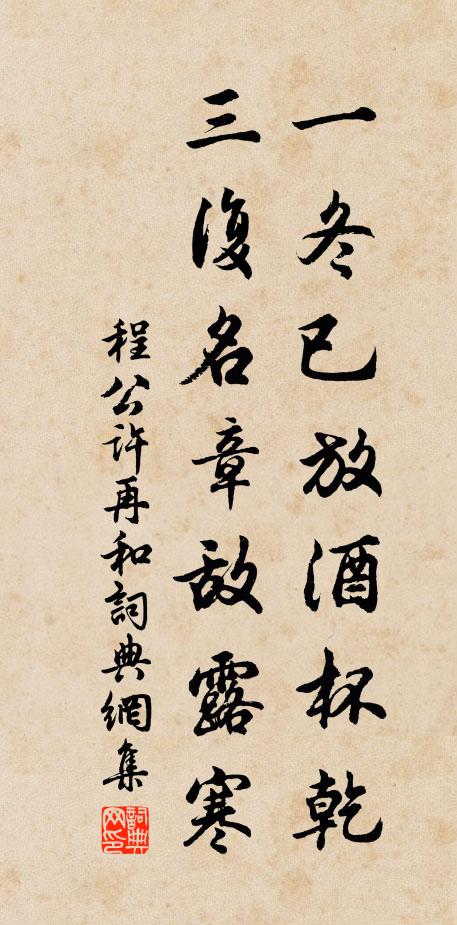 一冬已放酒杯乾
三復名章敌露寒
程公許再和詞典網集
詞典
网印